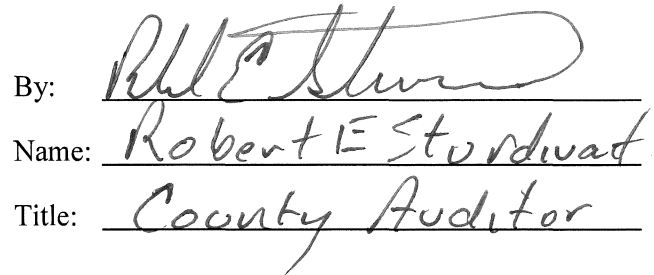 By:
Name: Robert E Sturdivat
Title: County Auditor